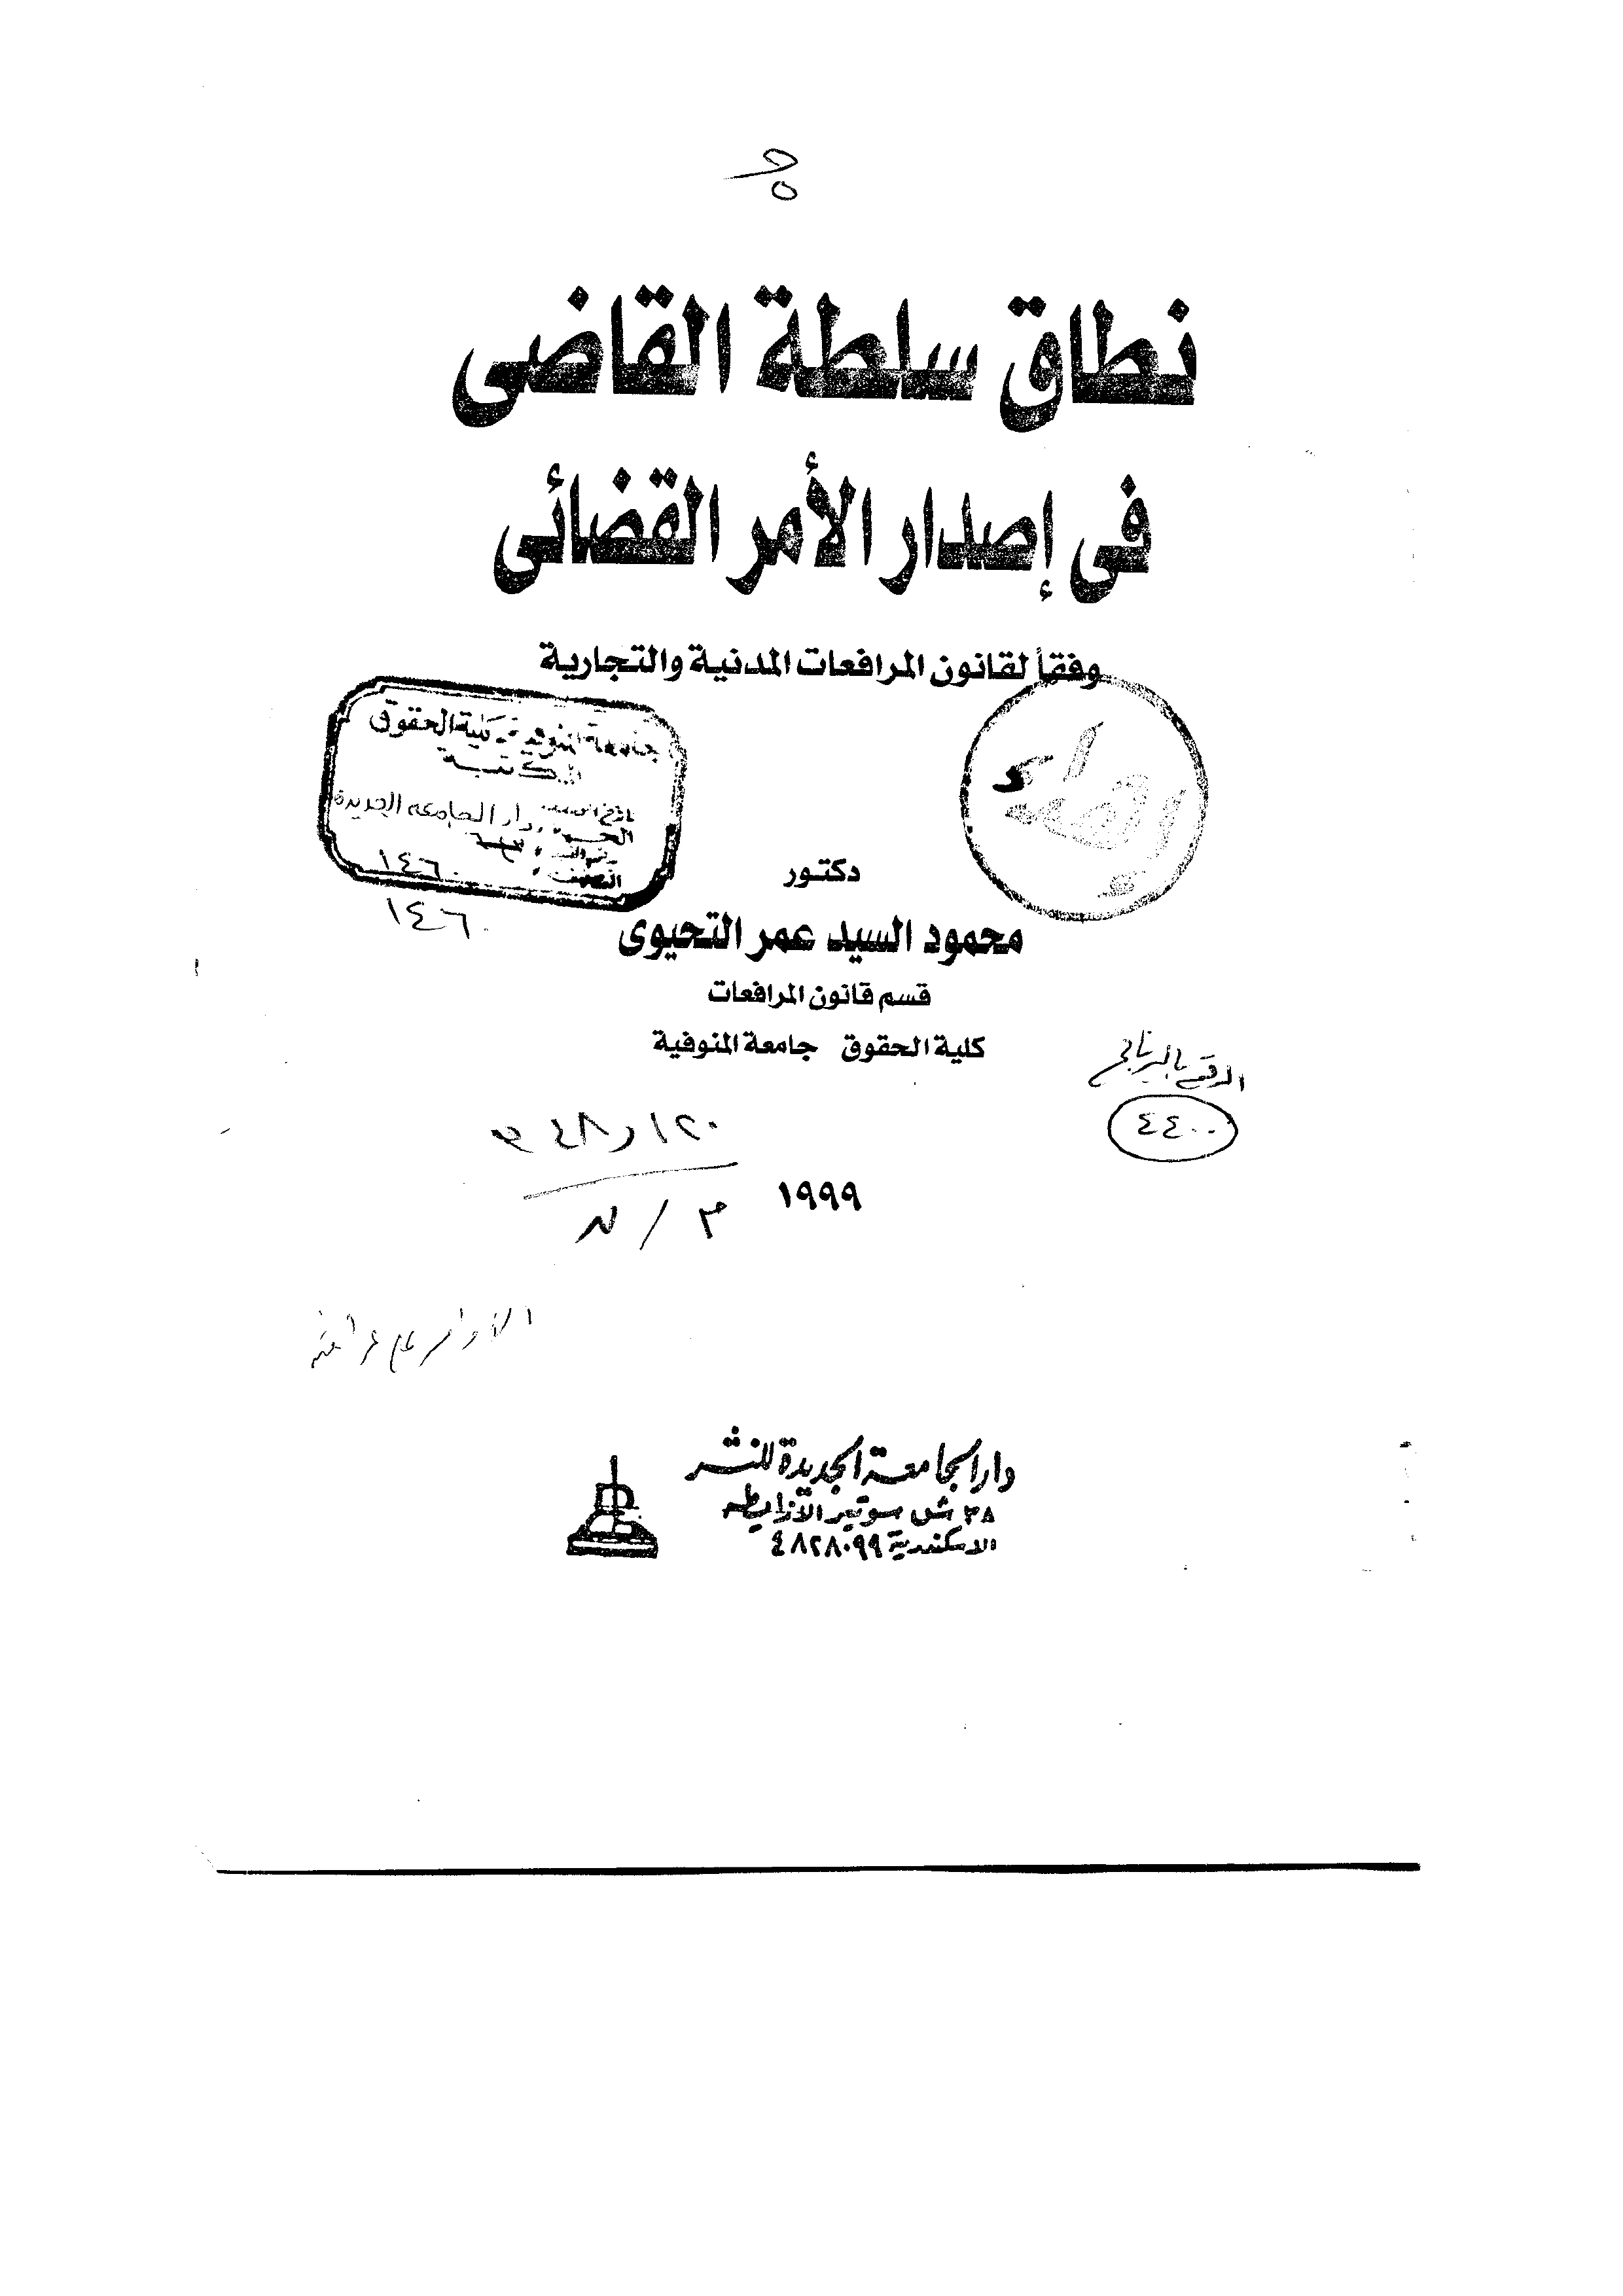 نطاق سلطة القاضى
فى إصدار الأمر القضائى
وفقاً لقانون المرافعات المدنية والتجارية
جامعة المنوفية كلية الحقوق
المكتبة
دار الجامعه الجديدة
١٤٦٠
١٤٦٠
دكتور
محمود السيد عمر التحيوى
قسم قانون المرافعات
كلية الحقوق جامعة المنوفية
الرقم بالبرنامج
٤٤٠٠
١٩٩٩
الأوامر على عرائض
دار الجامعة الجديدة للنشر
٣٨ ش سوتير الأزاريطه
الاسكندرية ٤٨٢٨٠٩٩